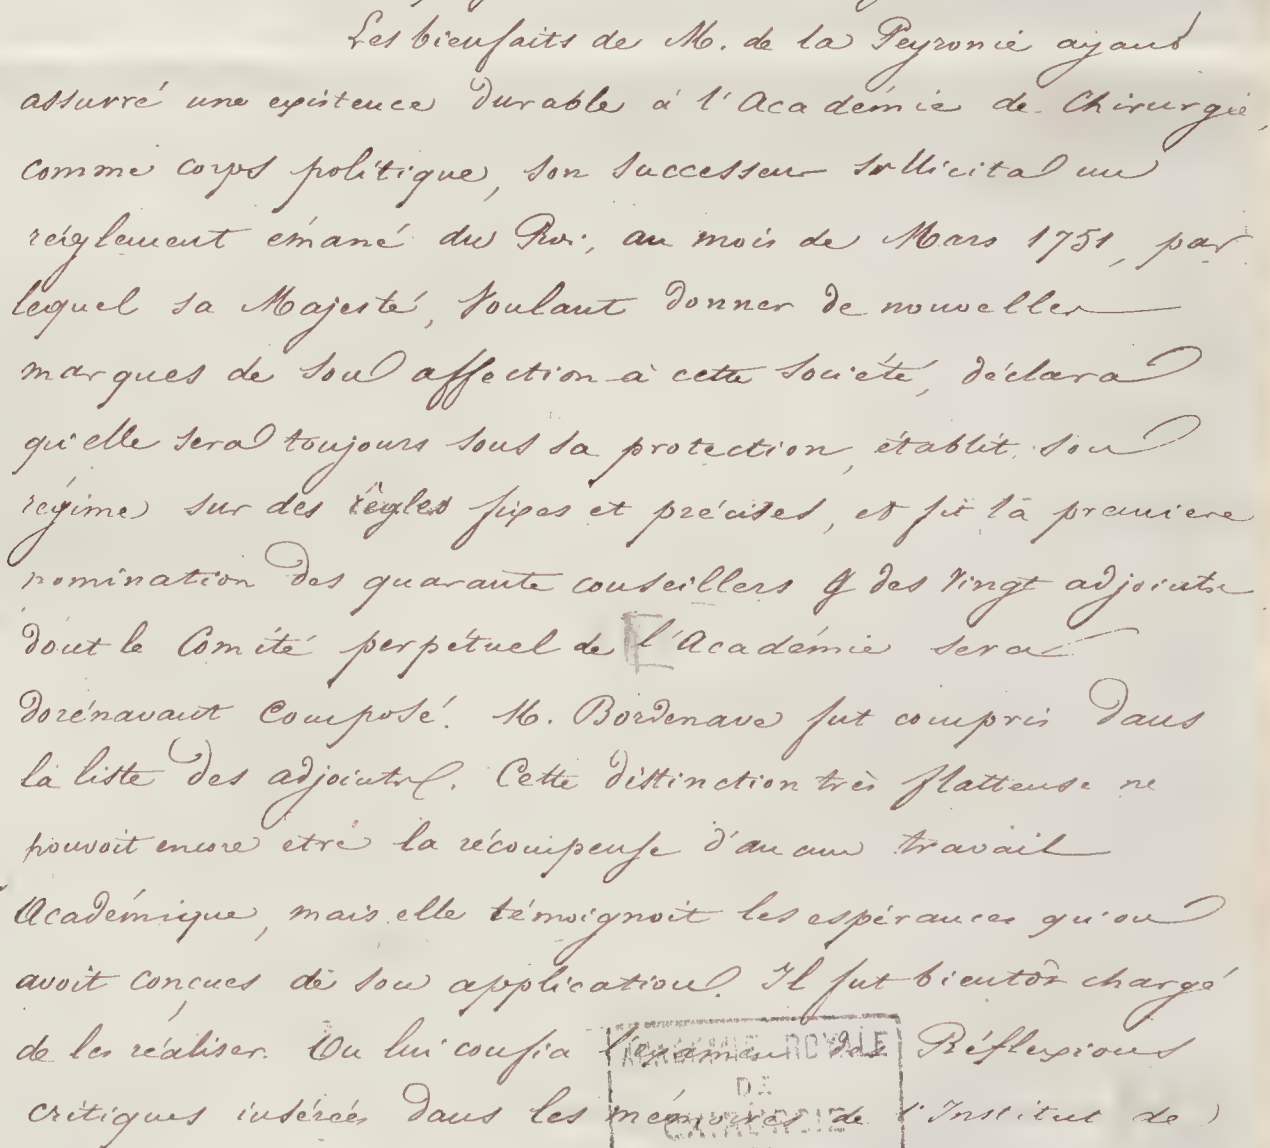 Les bienfaits de M. de la Peyronie ayant
assurré une existence durable à l'Académie de Chirurgie,
comme corps politique, son successeur sollicita un
réiglement émané du Roi, au mois de Mars 1751, par
lequel sa Majesté, voulant donner de nouvelles
marques de son affection à cette société, déclara
qu'elle sera toujours sous sa protection, établit son
régime sur des règles fixes et précises, et fit la premiere
nomination des quarante conseillers & des vingt adjoints
dont le Comité perpétuel de l'Académie sera
dorénavant composé. M. Bordenave fut compris dans
la liste des adjoints. Cette distinction très flatteuse ne
pouvoit encore etre la récompense d'aucun travail
Académique, mais elle témoignoit les espérances qu'on
avoit conçues de son application. Il fut bientôt chargé
de les réaliser. On lui confia l'examen des Réflexions
critiques insérées dans les mémoires de l'Institut de
ACADÉMIE ROYALE
DE
CHIRURGIE